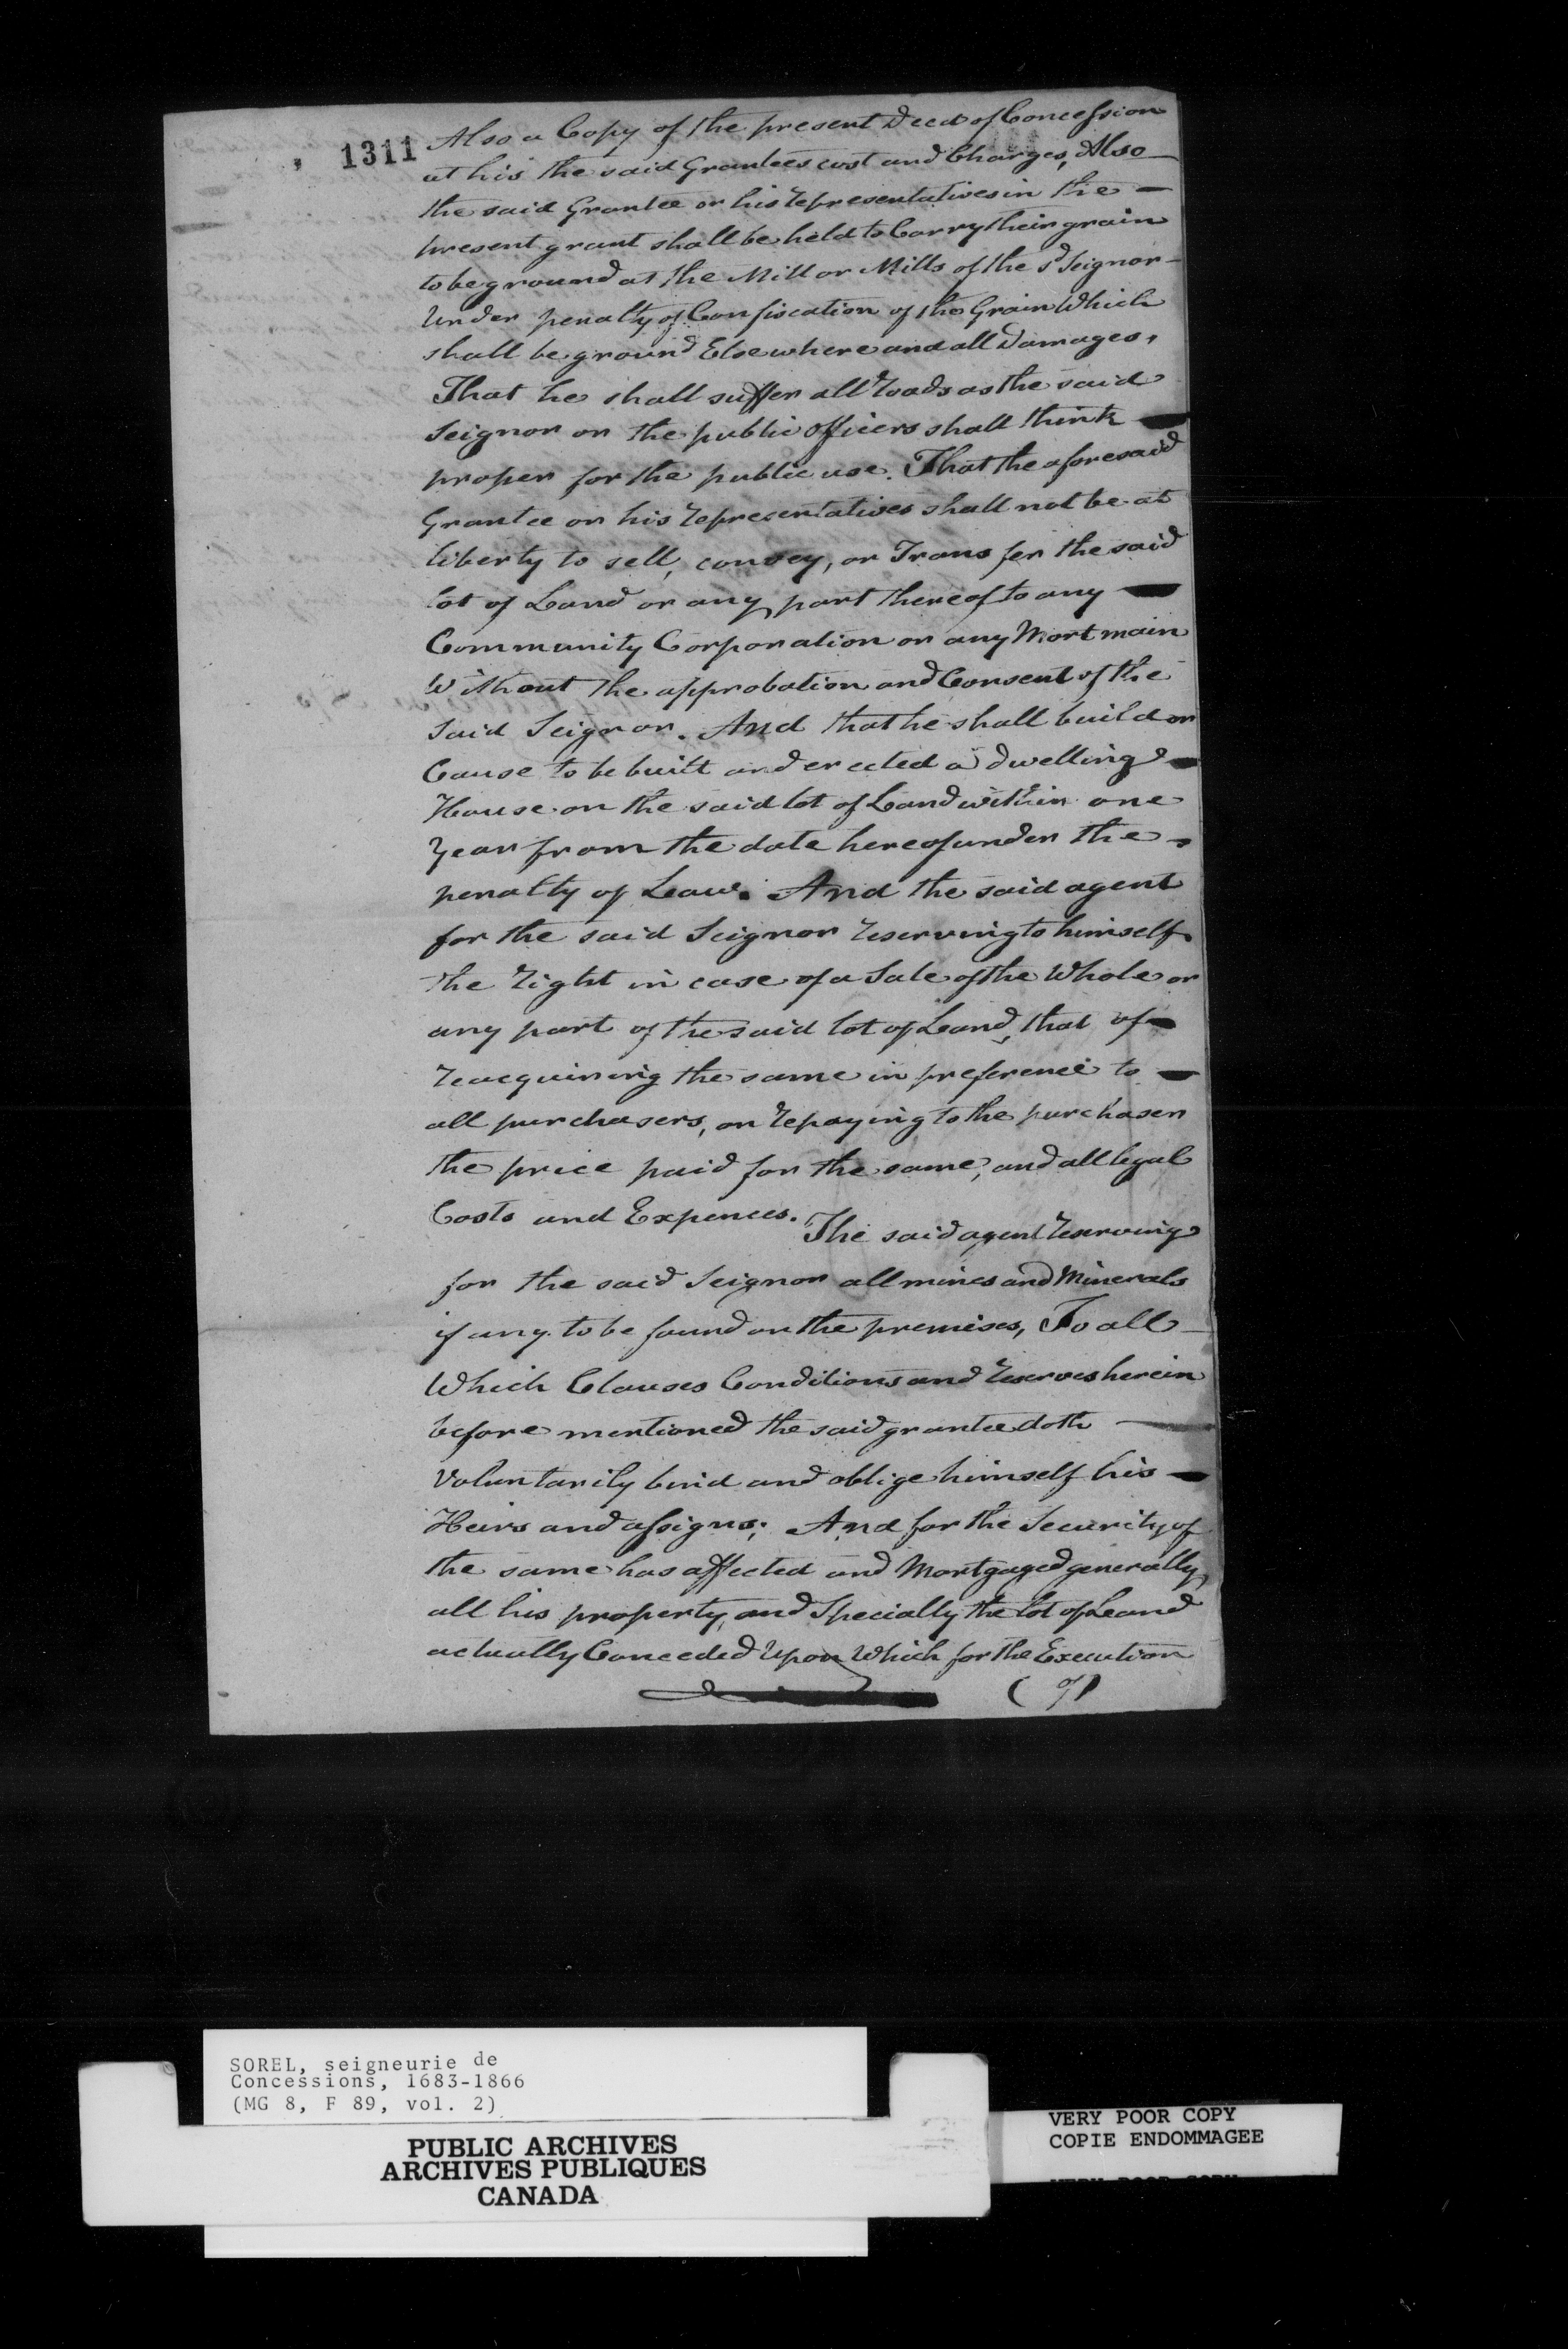 1311
Also a Copy of the present Deed of Concession
at his the said Grantees cost and Charges, Also
the said Grantee or his representatives in the
present grant shall be held to Carry their grain
to be ground at the Mill or Mills of the sd Seignor
Under penalty of Confiscation of the Grain Which
shall be ground Elsewhere and all Damages,
That he shall suffer all roads as the said
Seignor or the public officers shall think
proper for the public use. That the aforesaid
Grantee or his representatives shall not be at
liberty to sell, convey, or Transfer the said
lot of Land or any part thereof to any
Community Corporation or any Mortmain
Without the approbation and Consent of the
Said Seignor. And that he shall build or
Cause to be built and erected a dwelling
House on the said lot of Land within one
year from the date hereof under the
penalty of Law. And the said agent
for the said Seignor reserving to himself
the right in case of a Sale of the Whole or
any part of the said lot of Land, that of
reacquiring the same in preference to
all purchasers, on repaying to the purchaser
the price paid for the same, and all legal
Costs and Expences. The said agent reserving
for the said Seignor all mines and Minerals
if any to be found on the premises, To all
Which Clauses Conditions and reserves herein
before mentioned the said grantee doth
Voluntarily bind and oblige himself his
Heirs and assigns; And for the Security of
the same has affected and Mortgaged generally
all his property, and Specially the lot of Land
actually Conceded Upon Which for the Execution
(of)
SOREL, seigneurie de
Concessions, 1683-1866
(MG 8, F 89, vol. 2)
PUBLIC ARCHIVES
ARCHIVES PUBLIQUES
CANADA
VERY POOR COPY
COPIE ENDOMMAGEE
VERY POOR COPY